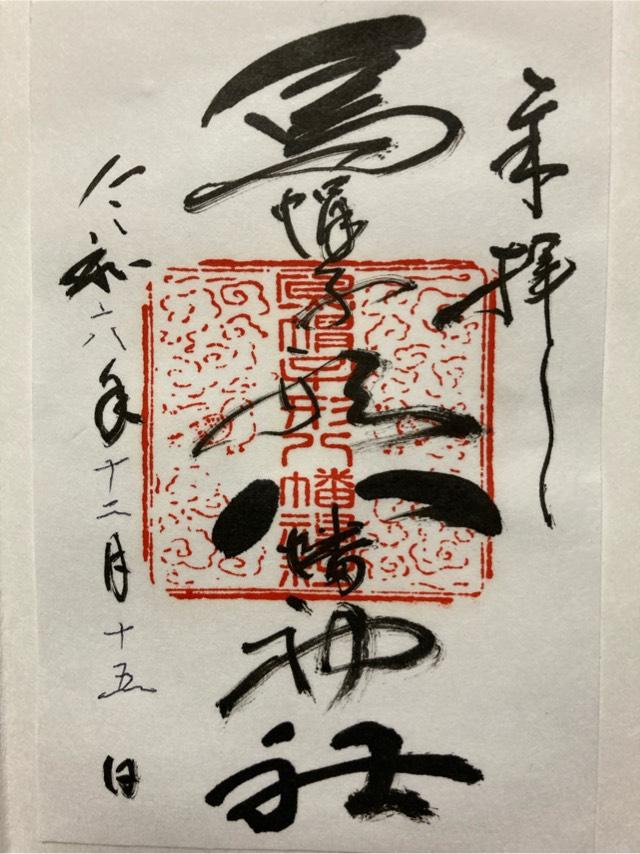 奉拝
烏帽子形八幡神社
烏帽子形八幡神社
令和六年十二月十五日